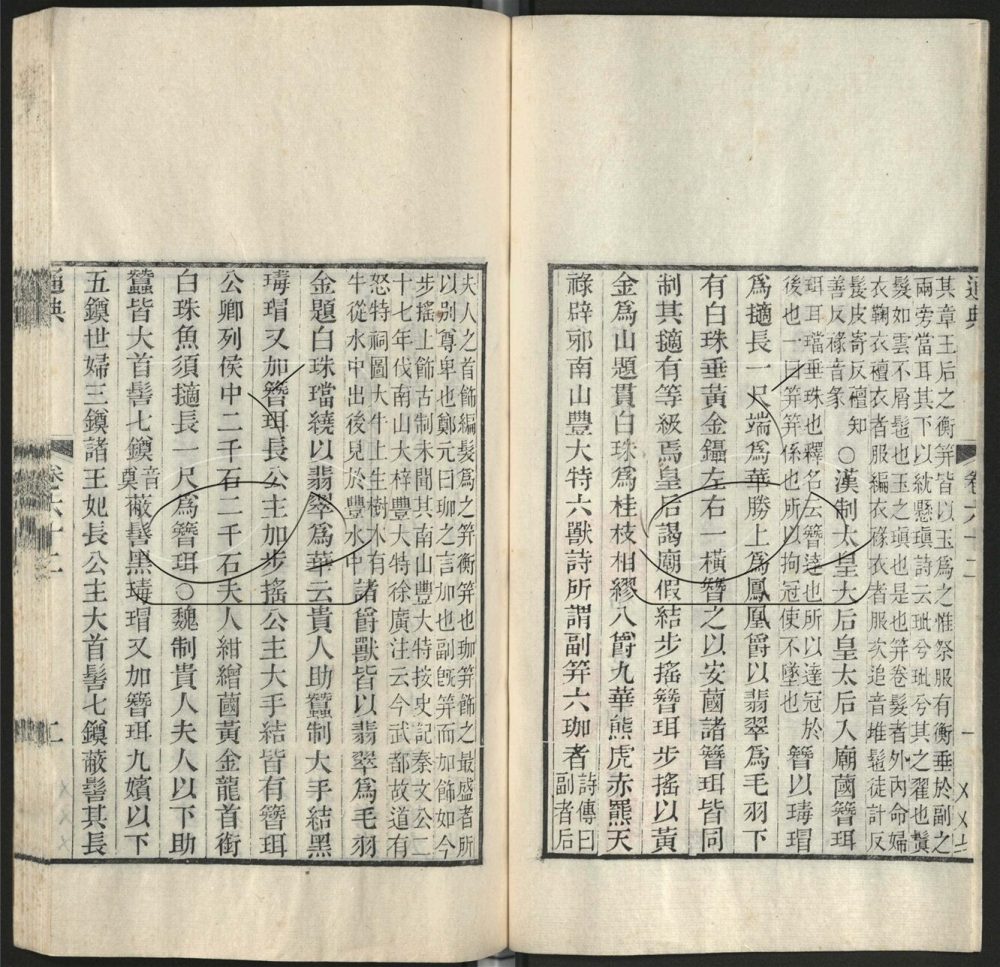 通典
卷六十二
一
其章王后之衡笄皆以玉爲之惟祭服有衡垂於副之
兩旁當耳其下以紞懸瑱詩云玼兮玼兮其之翟也鬒
髮如雲不屑髢也玉之瑱也是也笄卷髮者外內命婦
衣鞠衣襢衣者服編衣褖衣者服次追音堆鬄徒計反
髮皮寄反襢知
善反褖音彖
○漢制太皇太后皇太后入廟蔮簪珥
珥耳璫垂珠也釋名云簪逹也所以達冠於
後也一曰笄笄係也所以拘冠使不墜也
簪以瑇瑁
爲擿長一尺端爲華勝上爲鳳凰爵以翡翠爲毛羽下
有白珠垂黃金鑷左右一橫簪之以安蔮諸簪珥皆同
制其擿有等級焉皇后謁廟假結步搖簪珥步搖以黃
金爲山題貫白珠爲桂枝相繆八爵九華熊虎赤羆天
祿辟邪南山豐大特六獸詩所謂副笄六珈者
詩傳曰
副者后
夫人之首飾編髮爲之笄衡笄也珈笄飾之最盛者所
以別尊卑也鄭元曰珈之言加也副旣笄而加飾如今
步搖上飾古制未聞其南山豐大特按史記秦文公二
十七年伐南山大梓豐大特徐廣注云今武都故道有
怒特祠圖大牛上生樹木有
牛從水中出後見於豐水中
諸爵獸皆以翡翠爲毛羽
金題白珠璫繞以翡翠爲華云貴人助蠶制大手結黑
瑇瑁又加簪珥長公主加步搖公主大手結皆有簪珥
公卿列侯中二千石二千石夫人紺繒蔮黃金龍首銜
白珠魚須擿長一尺爲簪珥○魏制貴人夫人以下助
蠶皆大首髻七鏌
音
奠
蔽髻黑瑇瑁又加簪珥九嬪以下
五鏌世婦三鏌諸王妃長公主大首髻七鏌蔽髻其長
通典
卷六十二
二